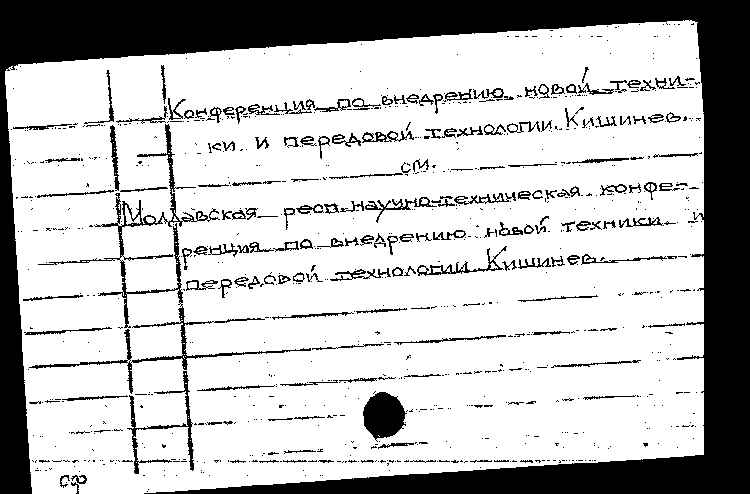 Конференция по внедрению новой техни-
ки и передовой технологии. Кишинев.
см.
Молдавская респ. научно-техническая конфе-
ренция по внедрению новой техники и
передовой технологии. Кишинев.
сф